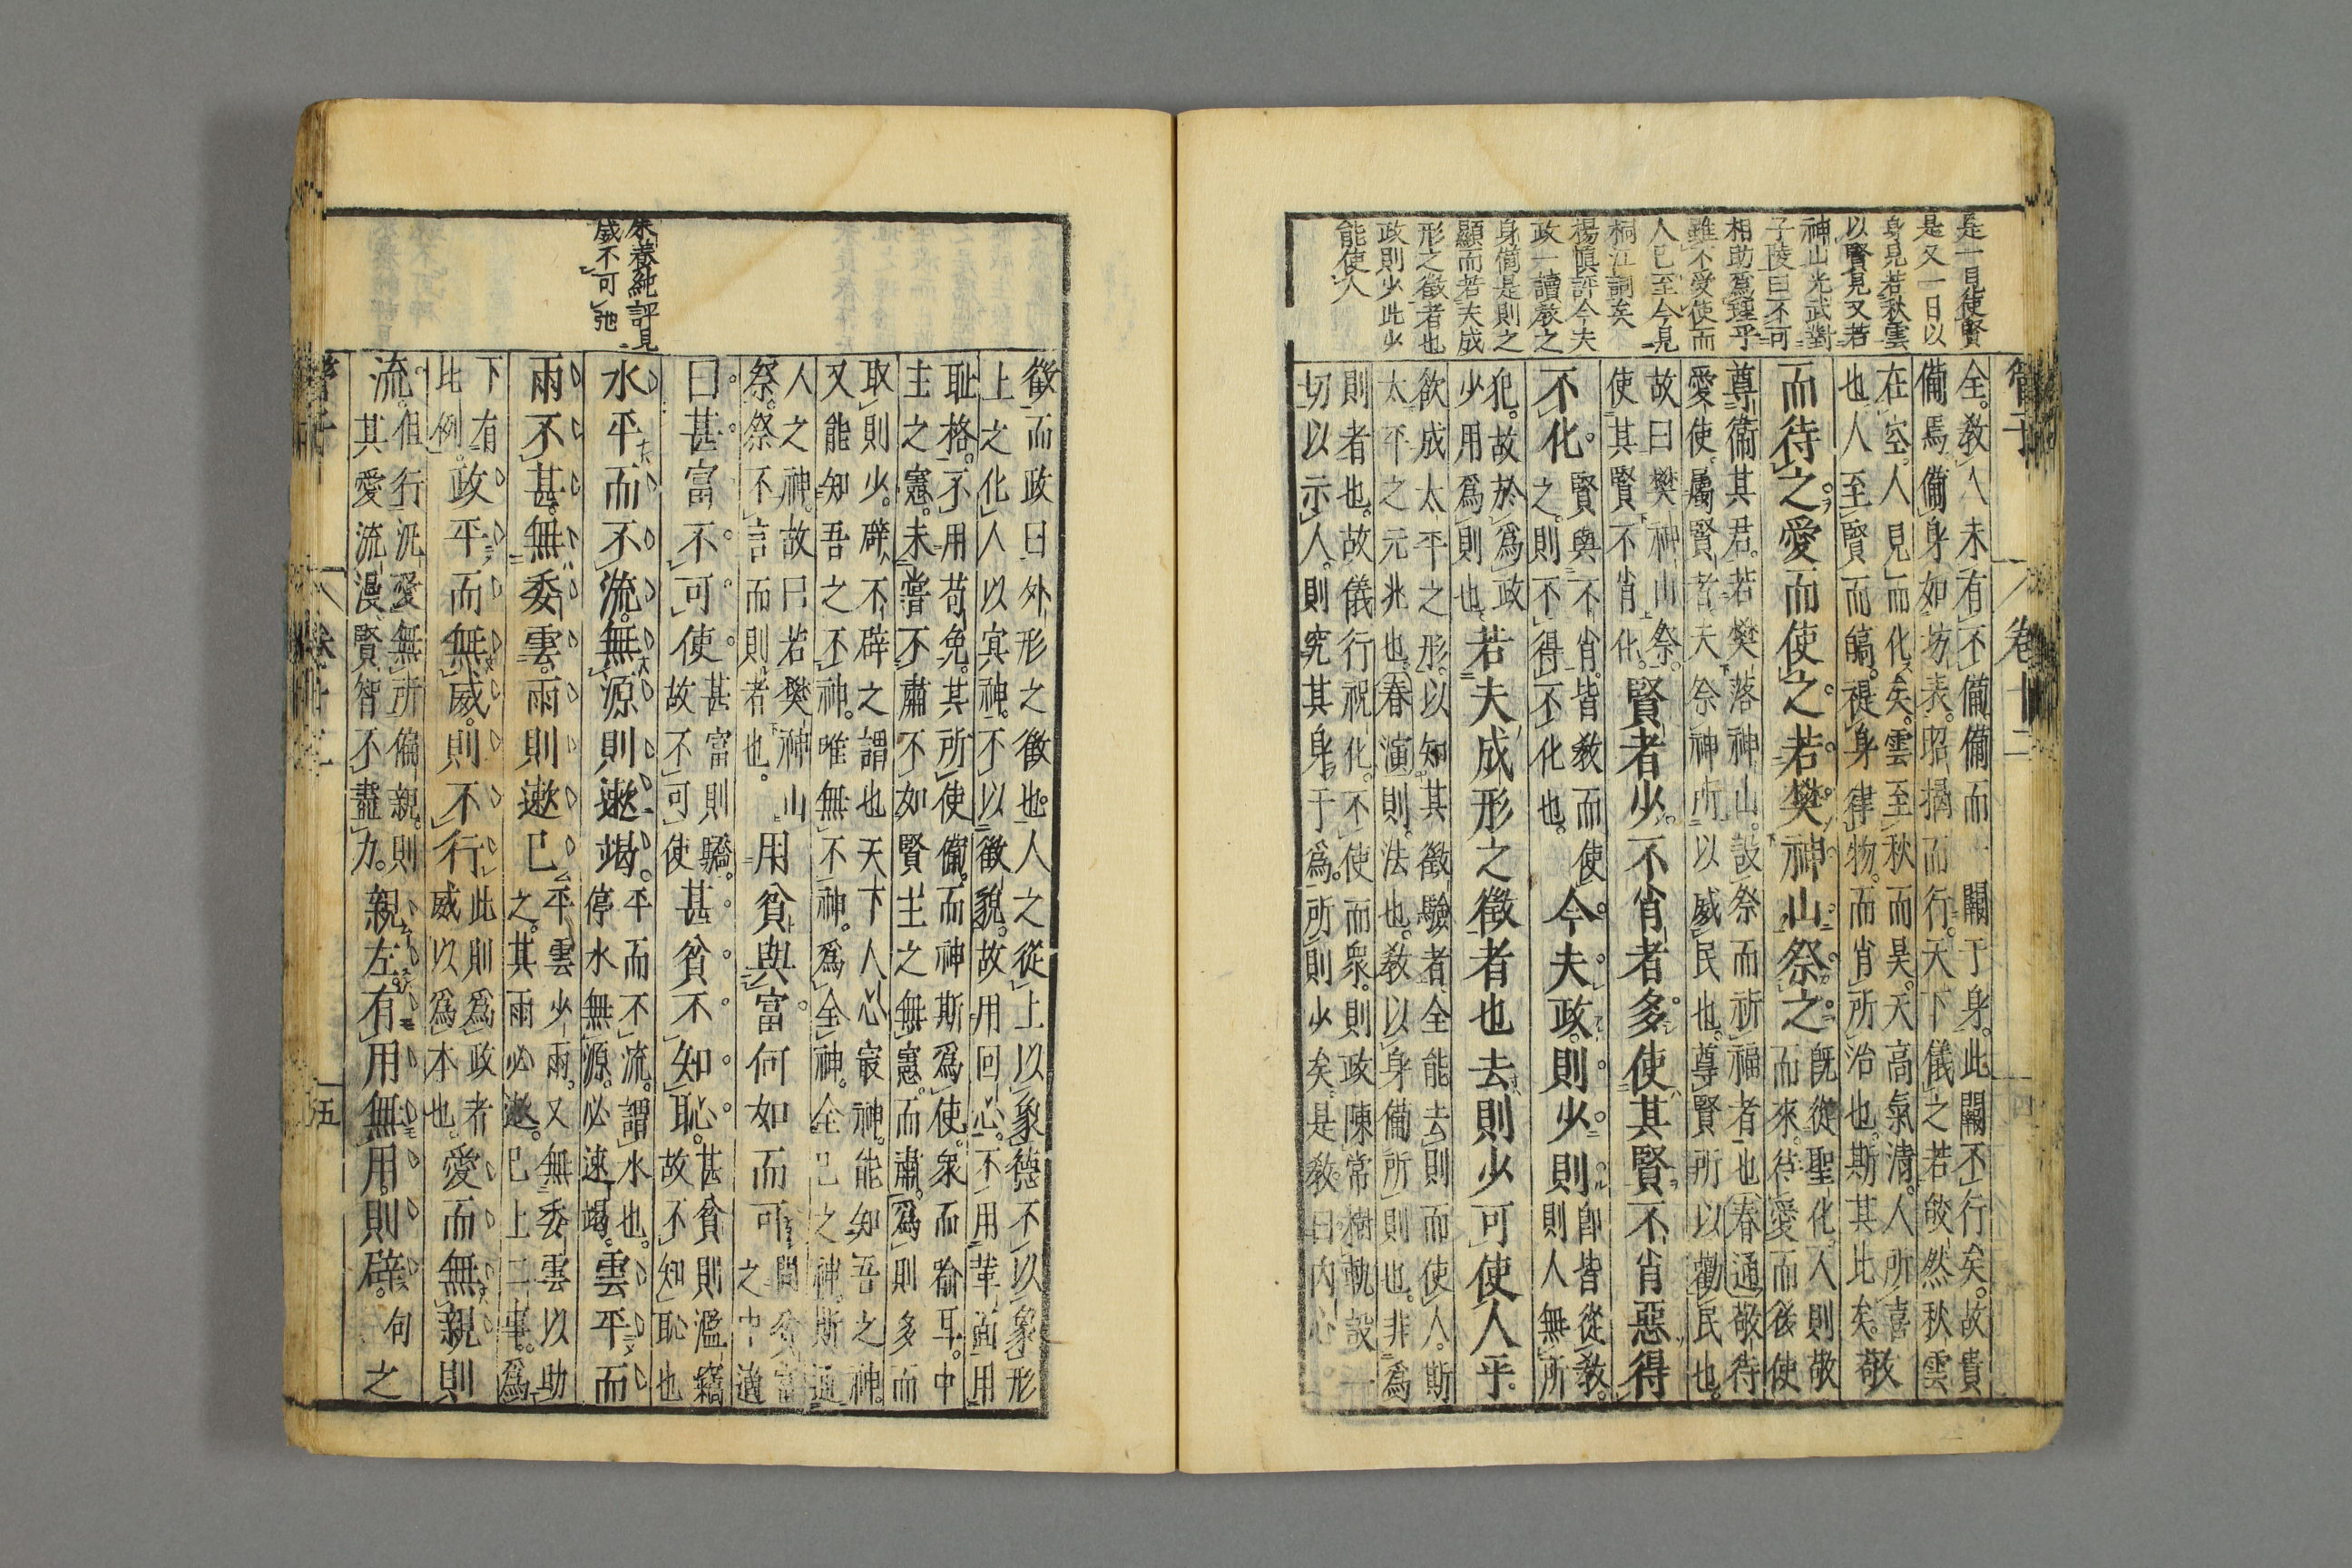 是一見使賢
是又一日以
身見若秋雲
以賢見又若
神山光武對
子陵曰不可
相助爲理乎
雖不愛使而
人已至今見
桐江詞矣
楊愼評今夫
政一讀教之
身備是則之
顯而若夫成
形之徵者也
政則少此少
能使人
管子 卷十二
全教人未有不備備而一闕于身此闕不行矣故貴
備焉備身如坊表昭揭而行天下儀之若皎然秋雲
在空人見而化矣雲至秋而昊天高氣淸人所喜
也人至賢而皜禔身律物而肖所治也斯其比矣敬
而待之愛而使之若樊神山祭之
旣從聖化人則敬
而來待愛而後使
尊衞其君若樊落神山設祭而祈福者也春通敬待
愛使屬賢者夫祭神所以威民也尊賢所以勸民也
故曰樊神山祭
使其賢不肖化
賢者少不肖者多使其賢不肖惡得
不化
賢與不肖皆教而使
之則不得不化也
今夫政則少則
卽皆從教
則人無所
犯故於爲政
少用爲則也
若夫成形之徵者也去則少可使人乎
欲成太平之形以知其徵驗者全能去則而使人斯
太平之元兆也春演則法也教以身備所則也非爲
則者也故儀行祝化不使而衆則政陳常樹軌設一
切以示人則究其身于爲所則少矣是教曰內心
朱養純評見
威不可弛
徵而政曰外形之徵也人之從上以象德不以象形
上之化人以寅神不以徵貌故用回心不用革面用
耻格不用苟免其所使備而神斯爲使衆而裕耳中
主之憲未嘗不肅不如賢主之無憲而肅爲則多而
取則少辟不辟之謂也天下人心宻神能知吾之神
又能知吾之不神唯無不神爲全神全已之神斯通
人之神故曰若樊神山
祭祭不言而則者也
用貧與富何如而可
問貧富
之中適
曰甚富不可使
甚富則驕
故不可使
甚貧不知恥
甚貧則濫竊
故不知恥也
水平而不流無源則遬竭
平而不流謂水也
停水無源必速竭
雲平而
雨不甚無委雲雨則遬已
平雲少雨又無委雲以助
之其雨必遬已上二事爲
下有
比例
政平而無威則不行
此則爲政者
威以爲本也
愛而無親則
流
但行汎愛無所偏親則
其愛流漫賢智不盡力
親左有用無用則辟
句
之
管子 卷十二 五